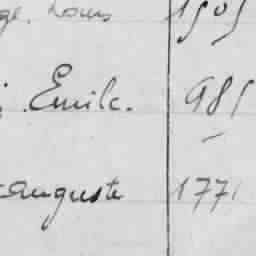 Louis 1505
Emile. 985
Auguste 1771